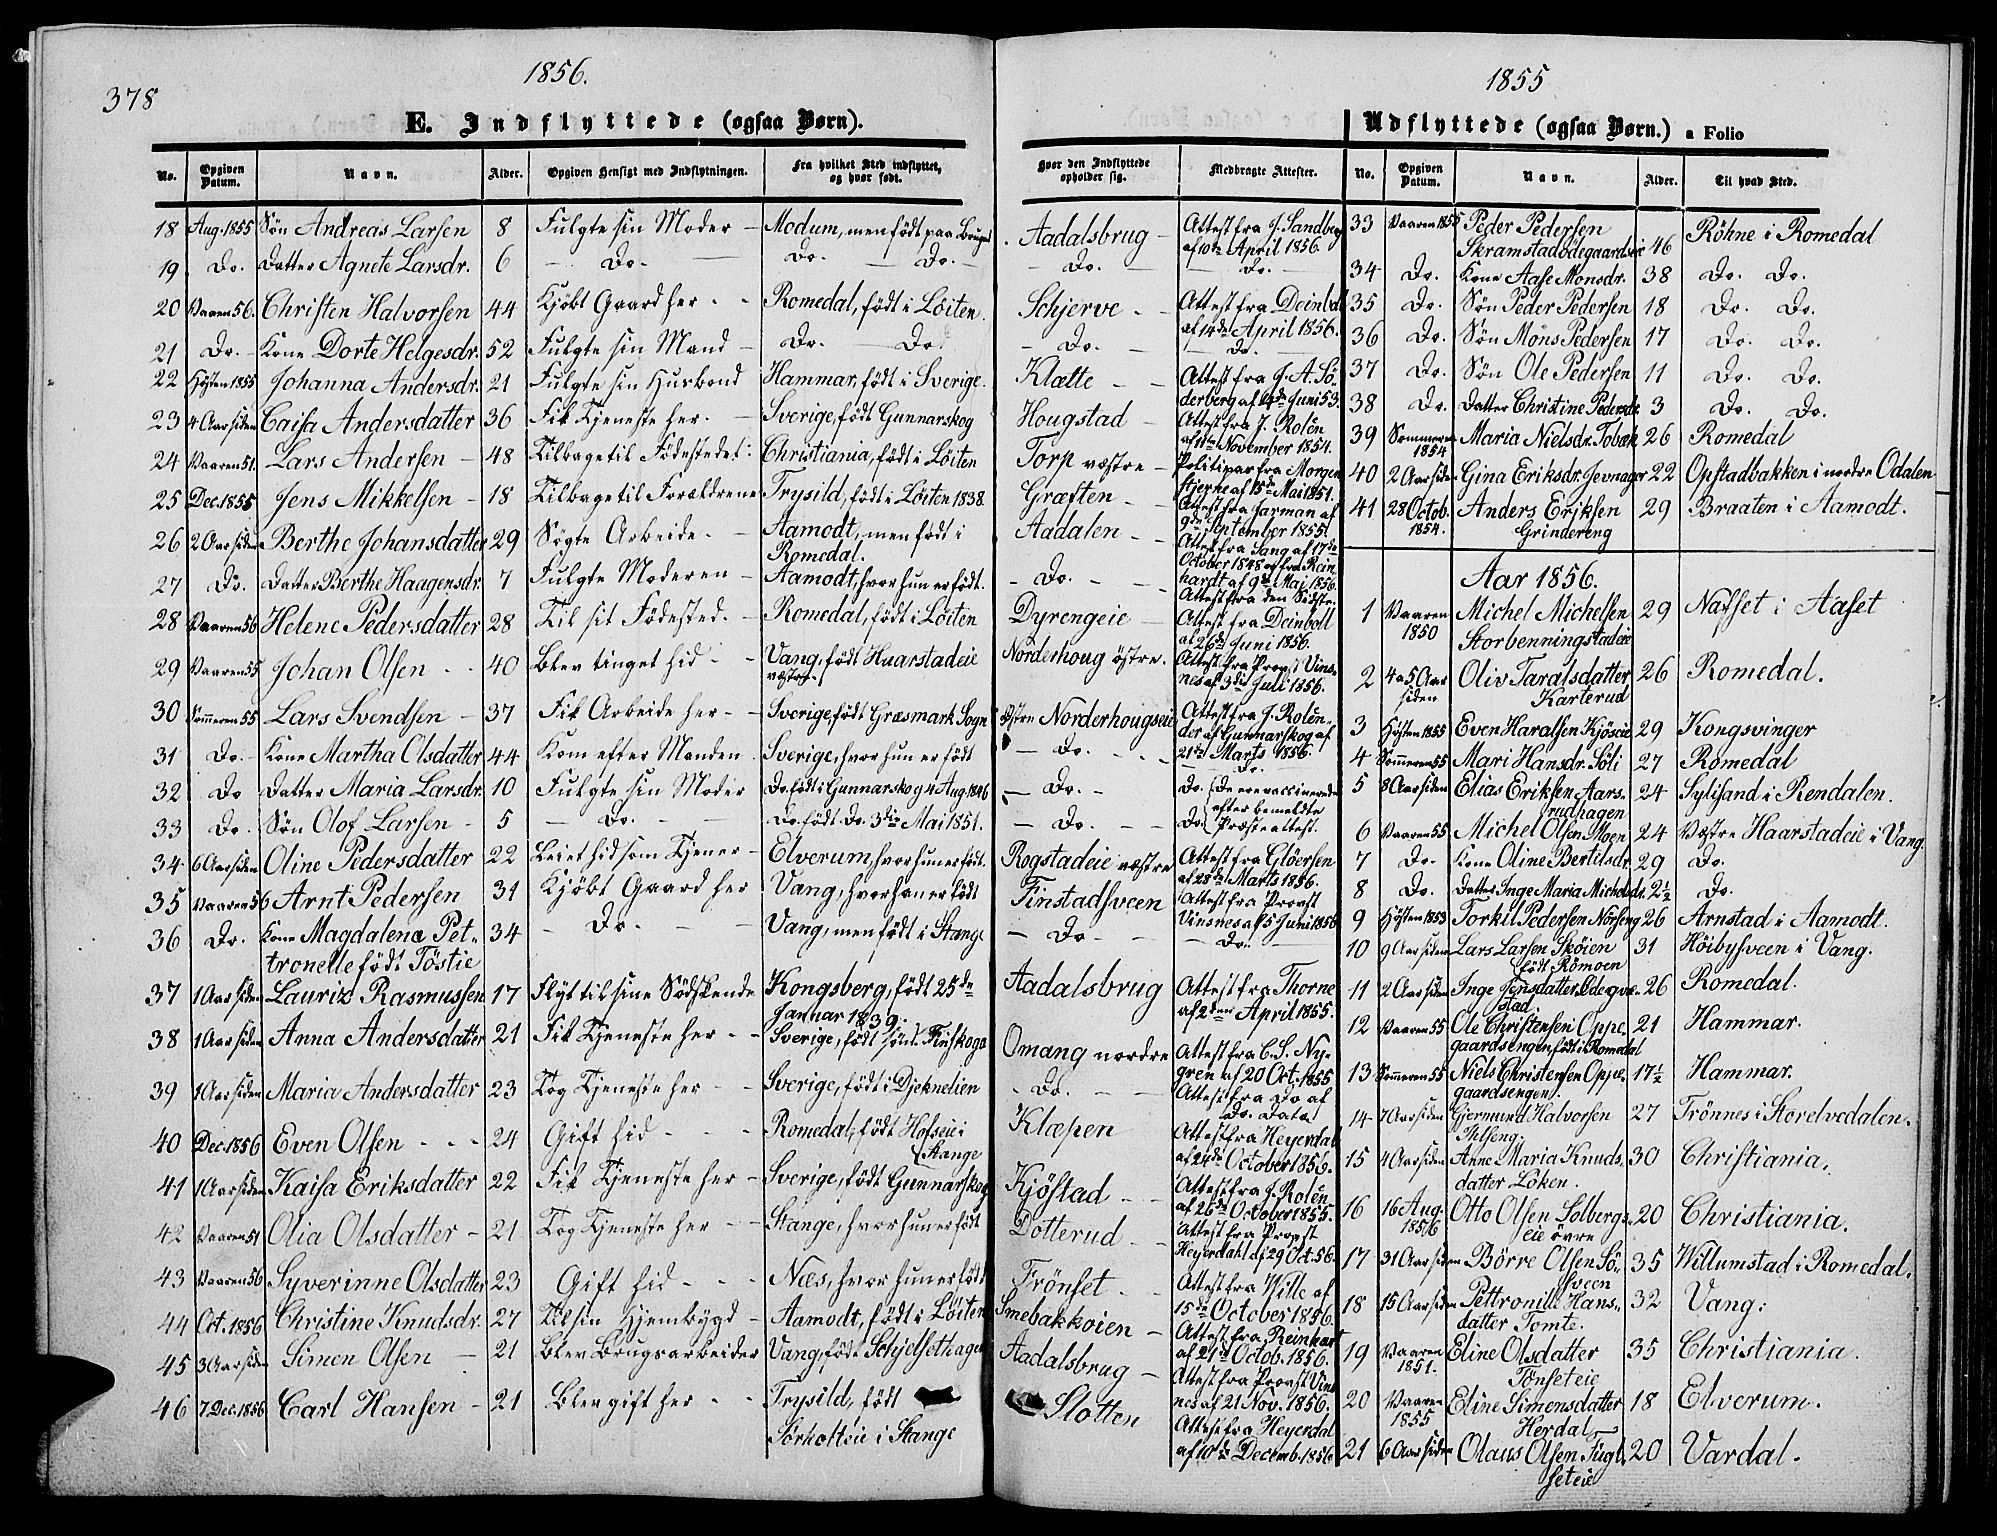 378
1856.
E. Indflyttede (ogsaa Børn).
No. Opgiven Datum. Navn. Alder. Opgiven Hensigt med Indflytningen. Fra hvilket Sted indflyttet, og hvor født.
18 Aug. 1855 Søn Andreas Larsen 8 Fulgte sin Moder - Modum, men født paa Bruget
19 Do. Datter Agnete Larsdr. 6 - Do. - Do. - Do. -
20 Vaaren 56. Christen Halvorsen 44 Kjöbt Gaard her - - Romedal, født i Løiten.
21 Do. - Kone Dorte Helgesdr. 52 Fulgte sin Mand - Do. - Do.
22 Høsten 1855 Johanna Andersdr. 21 Fulgte sin Husbond Hammar, født i Sverige.
23 4 Aar siden Caisa Andersdatter 36 Fik Tjeneste her. - Sverige, født Gunnarskog
24 Vaaren 51. Lars Andersen - 48 Tilbage til Fødestedet: Christiania, født i Løiten
25 Dec. 1855 Jens Mikkelsen - 18 Tilbage til Forældrene Trysild, født i Løiten 1838.
26 2 Aar siden Berthe Johansdatter 29 Søgte Arbeide. - Aamodt, men født i
Romedal.
27 Do. Datter Berthe Haagensdr. 7 Fulgte Moderen - Aamodt, hvor hun er født.
28 Vaaren 56 Helene Pedersdatter 28 Til sit Fødested. - Romedal, født i Løiten
29 Vaaren 55 Johan Olsen - - 40 Blev tinget hid - - Vang, født Haarstadeie
væstre.
30 Sommeren 55 Lars Svendsen - 37 Fik Arbeide her - - Sverige, født Græsmark Sogn
31 Do. - Kone Martha Olsdatter 44 Kom efter Manden. Sverige, hvor hun er født
32 Do Datter Maria Larsdr. 10 Fulgte sin Moder Do. født i Gunnarskog 4 Aug. 1846
33 Do. Søn Olof Larsen - 5 - Do. - Do. født Do. 3die Mai 1851.
34 6 Aar siden Oline Pedersdatter 22 Leiet hid som Tjener - Elverum, hvor hun er født.
35 Vaaren 56 Arnt Pedersen 31 Kjöbt Gaard her Vang, hvor han er født
36 Do. Kone Magdalena Pet- 34 - Do. - - Vang, men født i Stange
tronelle født Töstie
37 1 Aar siden Lauriz Rasmussen 17 Flyt til sine Sødskende Kongsberg, født 25de
Januar 1839.
38 1 Aar siden Anna Andersdatter 21 Fik Tjeneste her - - Sverige, født söndr. Finskoga
39 1 Aar siden Maria Andersdatter 23 Tog Tjeneste her - - Sverige, født i Djeknelien
40 Dec. 1856 Even Olsen - - - 24 Gift hid - - - Romedal, født Hofseie i
(Stange
41 1 Aar siden Kaisa Eriksdatter 22 Fik Tjeneste her - Sverige, født Gunnarskog
42 Vaaren 51 Olia Olsdatter - 21 Tog Tjeneste her - - Stange, hvor hun er født
43 Vaaren 56 Syverinne Olsdatter 23 Gift hid - - - Næs, hvor hun er født
44 Oct. 1856 Christine Knudsdr. 27 Til sin Hjembygd - Aamodt, født i Løiten
45 3 Aar siden Simen Olsen - 21 Blev Brugsarbeider Vang, født Schjelsethagen
46 7 Dec. 1856 Carl Hansen - 21 Blev gift her - - Trysild, født
Sørholteie i Stange
Hvor den Indflyttede opholder sig. Medbragte Attester.
Aadalsbrug - Attest fra J. Sandberg
af 10de April 1856.
- Do. - - Do. -
Schjerve - - Attest fra Deinboll
af 14de April 1856.
- Do. - - Do. -
Klætte - - Attest fra J. A. Sö-
derberg af Juni 53.
Hougstad - Attest fra J. Rolén
af November 1854.
Torp væstre - Politipas fra Morgen-
stjerne af 15de Mai 1851.
Græsten - Attest fra Jarman af
9de September 1855.
Aadalen - - Attest fra Tang af 17de
October 1848 og fra Rein-
- Do. - - hardt af 9de Mai 1856.
Attest fra den Sidste
Dyrengeie - Attest fra Deinboll
af 26de Juni 1856.
Norderhoug östre. Attest fra Provst Vins-
nes af 3die Juli 1856.
Østre Norderhougseie Attest fra J. Rolén-
der af Gunnarskog af
- Do. - - 21de Marts 1856.
Do.
- Do. - Do. (De ere vaccinerede
efter bemeldte
- Do. - Do. Præsteattest.
Rogstadeie væstre Attest fra Glöersen
af 28de Marts 1856.
Finstadsveen Attest fra Provst
Vinsnes af 5 Juni 1856
- Do - - Do. -
Aadalsbrug Attest fra Thorne
af 2den April 1855.
Omang nordre Attest fra C. S. Ny-
gren af 20 Oct. 1855
- Do. - Attest fra Do af
Do. Dato.
Klæpen Attest fra Heyerdal
af 24de October 1856.
Kjöstad - - Attest fra J. Rolén
af 26de October 1855.
Dotterud - - Attest fra Provst
Heyerdahl d. 29 Oct. 56.
Trönset - - Attest fra Wille af
15de October 1856.
Smebakköien - Attest fra Reinhart
af 21de Octob. 1856.
Aadalsbrug - Attest fra Provst Vins
nes af 21 Nov. 1856.
Slotten Attest fra Heyerdal
af 10de Decemb. 1856
1855
Udflyttede (ogsaa Børn.) a Folio
No. Opgiven Datum. Navn. Alder. Til hvad Sted.
33 Vaaren 1855 Peder Pedersen
Skramstadødegaardseie 46 Röhne i Romedal
34 Do. Kone Aase Monsdr. 38 Do. Do.
35 Do. Søn Peder Pedersen 18 Do. Do.
36 Do. Søn Möns Pedersen 17 Do. Do.
37 Do. Søn Ole Pedersen 11 Do. Do.
38 Do. Datter Christine Pedersdr. 3 Do. Do.
39 Sommeren 1854 Maria Nielsdr. Tobæk 26 Romedal
40 2 Aar siden Gina Eriksdr. Jevnager 22 Opstadbakken i nordre Odalen
41 28 Octob. 1854. Anders Eriksen 29 Braaten i Aamodt.
Grindereng
Aar 1856.
1 Vaaren 1850 Michel Michelsen 29 Næsset i Aaset
Storbenningstadeie
2 4 a 5 Aar siden Oliv Taralsdatter 26 Romedal.
Karterud
3 Høsten 1855 Even Haralsen Kjöseie 29 Kongsvinger
4 Sommeren 55 Mari Hansdr. Söli 27 Romedal
5 8 Aar siden Elias Eriksen Aars- 24 Sylisand i Rendalen.
rudhagen
6 Vaaren 55 Michel Olsen Moen 24 Væstre Haarstadeie i Vang.
7 Do. Kone Oline Bertilsdr. 29 Do.
8 Do. Datter Inge Maria Michelsdr. 2½ Do.
9 Høsten 1853 Torkil Pedersen Nörseng 26 Arnstad i Aamodt.
10 9 Aar siden Lars Larsen Sköien 31 Höibysveen i Vang.
født Römoen
11 2 Aar siden Inge Jensdatter Ödegve- 26 Romedal.
stad
12 Vaaren 55 Ole Christensen Oppe- 21 Hammar.
gaardsengen, født i Romedal
13 Sommeren 55 Niels Christensen Oppe- 17½ Hammar.
gaardsengen.
14 7 Aar siden Gjermund Halvorsen 27 Trönnes i Storelvedalen.
15 4 Aar siden Anne Maria Knuds- 30 Christiania.
datter Löken.
16 16 Aug. 1856 Otto Olsen Solbergs- 20 Christiania.
eie övre
17 31 Aar siden Börre Olsen Sö- 35 Willumstad i Romedal.
sveen
18 15 Aar siden Pettronille Hans- 32 Vang.
datter Tomte.
19 Vaaren 1851. Eline Olsdatter 35 Christiania.
Tönseteie
20 Vaaren 1855 Eline Simensdatter 18 Elverum.
Herdal
21 6 Aar siden Olaus Olsen Fugl- 20 Vardal.
seteie